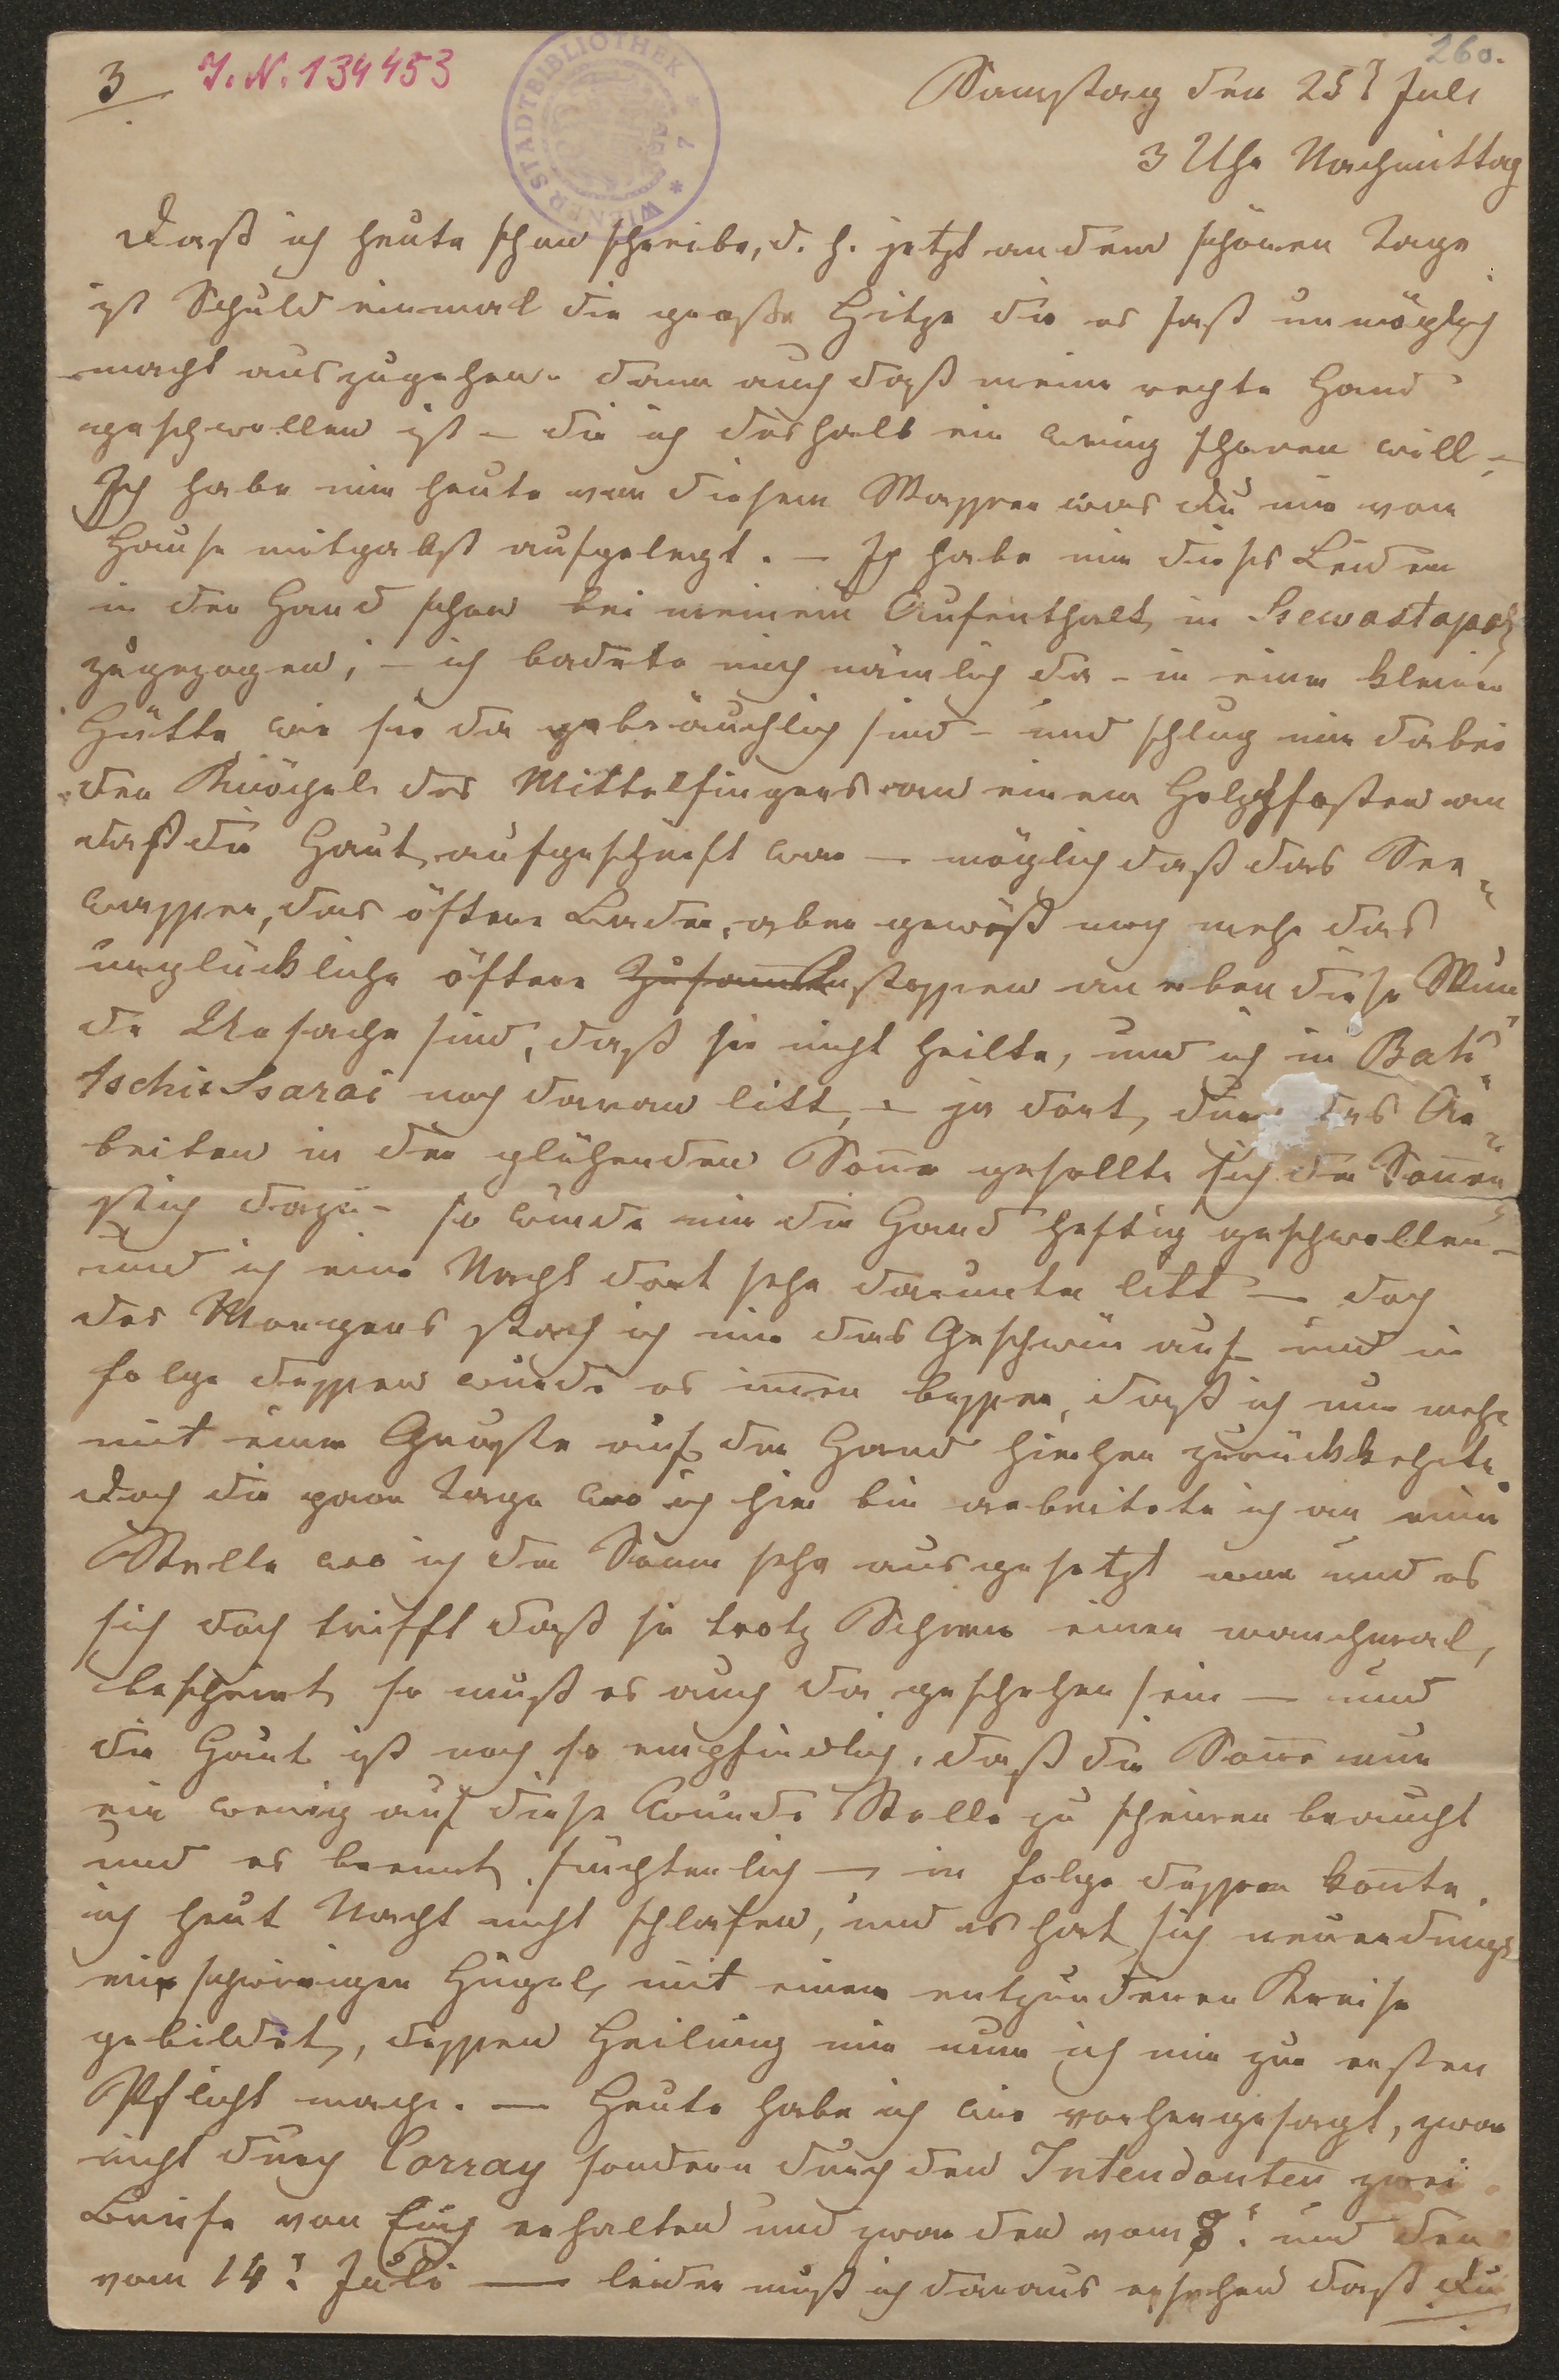 260.
3 J. N. 134453
WIENER STADTBIBLIOTHEK
Samstag den 25t Juli
3 Uhr Nachmittag
Daß ich heute schon schreibe, d. h. jetzt an dem schönen Tage
ist Schuld einmal die große Hitze die es fast unmöglich
macht auszugehen. dann auch daß meine rechte Hand
geschwollen ist – die ich deshalb ein wenig schonen will –
Ich habe mir heute von diesem Wasser was du mir von
Hause mitgabst aufgelegt. – Ich habe mir dieses Leiden
in der Hand schon bei meinem Aufenthalt in Sewastapol
zugezogen; – ich badete mich nämlich da – in einer kleinen
Hütte wie sie da gebräuchlich sind – und schlug mir dabei
den Knöchel des Mittelfingers an einem Holzpfosten an
daß die Haut aufgeschürft war – möglich daß das See-
wasser, das öftere Baden, aber gewiß noch mehr das
unglückliche öftere Zusammenstossen an eben diese Wun
de Ursache sind, daß sie nicht heilte, und ich in Bak-
tschissarai noch daran litt, – ja dort, durch das Ar-
beiten in der glühenden Sonne gesellte sich der Sonnen
stich dazu – so wurde mir die Hand heftig geschwollen –
und ich eine Nacht dort sehr darunter litt – doch
des Morgens stach ich mir das Geschwür auf und in
folge dessen wurde es immer besser, daß ich nur mehr
mit einer Kruste auf der Hand hierher zurückkehrte.
Doch die paar Tage wo ich hier bin arbeitete ich an einer
Stelle wo ich der Sonne sehr ausgesetzt war und es
sich doch trifft daß sie trotz Schirm einen manchmal,
bescheint, so muß es auch da geschehen sein – und
die Haut ist noch so empfindlich, daß die Sonne nur
ein wenig auf diese wunde Stelle zu scheinen braucht
und es brennt fürchterlich – in folge dessen konnte
ich heut Nacht nicht schlafen, und es hat sich neuerdings
ein schwieriger Hügel, mit einem entzündenen Kreise
gebildet, dessen Heilung mir nun ich mir zur ersten
Pflicht mache. – Heute habe ich wie vorhergesagt, zwar
nicht durch Corray sondern durch den Intendanten zwei
Briefe von Euch erhalten und zwar den vom 8t. und den
vom 14t. Juli – leider muß ich daraus ersehen daß Du